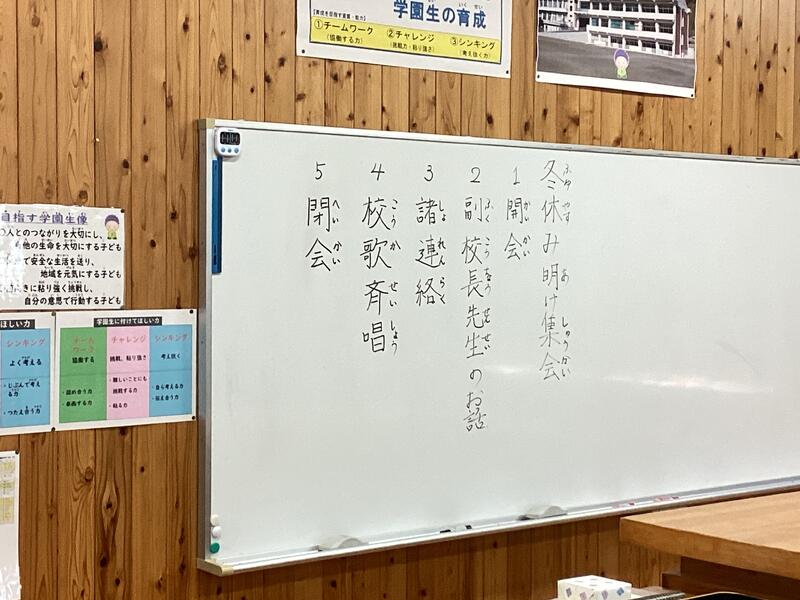 学園生の育成
①チームワーク ②チャレンジ ③シンキング
(協働する力) (挑戦力・粘り強さ) (考え抜く力)
冬休み明け集会
ふゆ やす あ しゅうかい
1 開会
かいかい
2 副校長先生のお話
3 諸連絡
しょ れん らく
4 校歌斉唱
こう か せい しょう
5 閉会
へい かい
目指す学園生像
人とのつながりを大切にし、
他の生命を大切にする子ども
で安全な生活を送り、
地域を元気にする子ども
きに粘り強く挑戦し、
自分の意思で行動する子ども
ほしい力
シンキング
よく考える
・じぶんで考える力
・つたえ合う力
学園生に付けてほしい力
チームワーク チャレンジ シンキング
協働する 挑戦、粘り強さ 考え抜く
・認め合う力
・参画する力
・難しいことにも挑戦する力
・粘る力
・自ら考える力
・伝え合う力